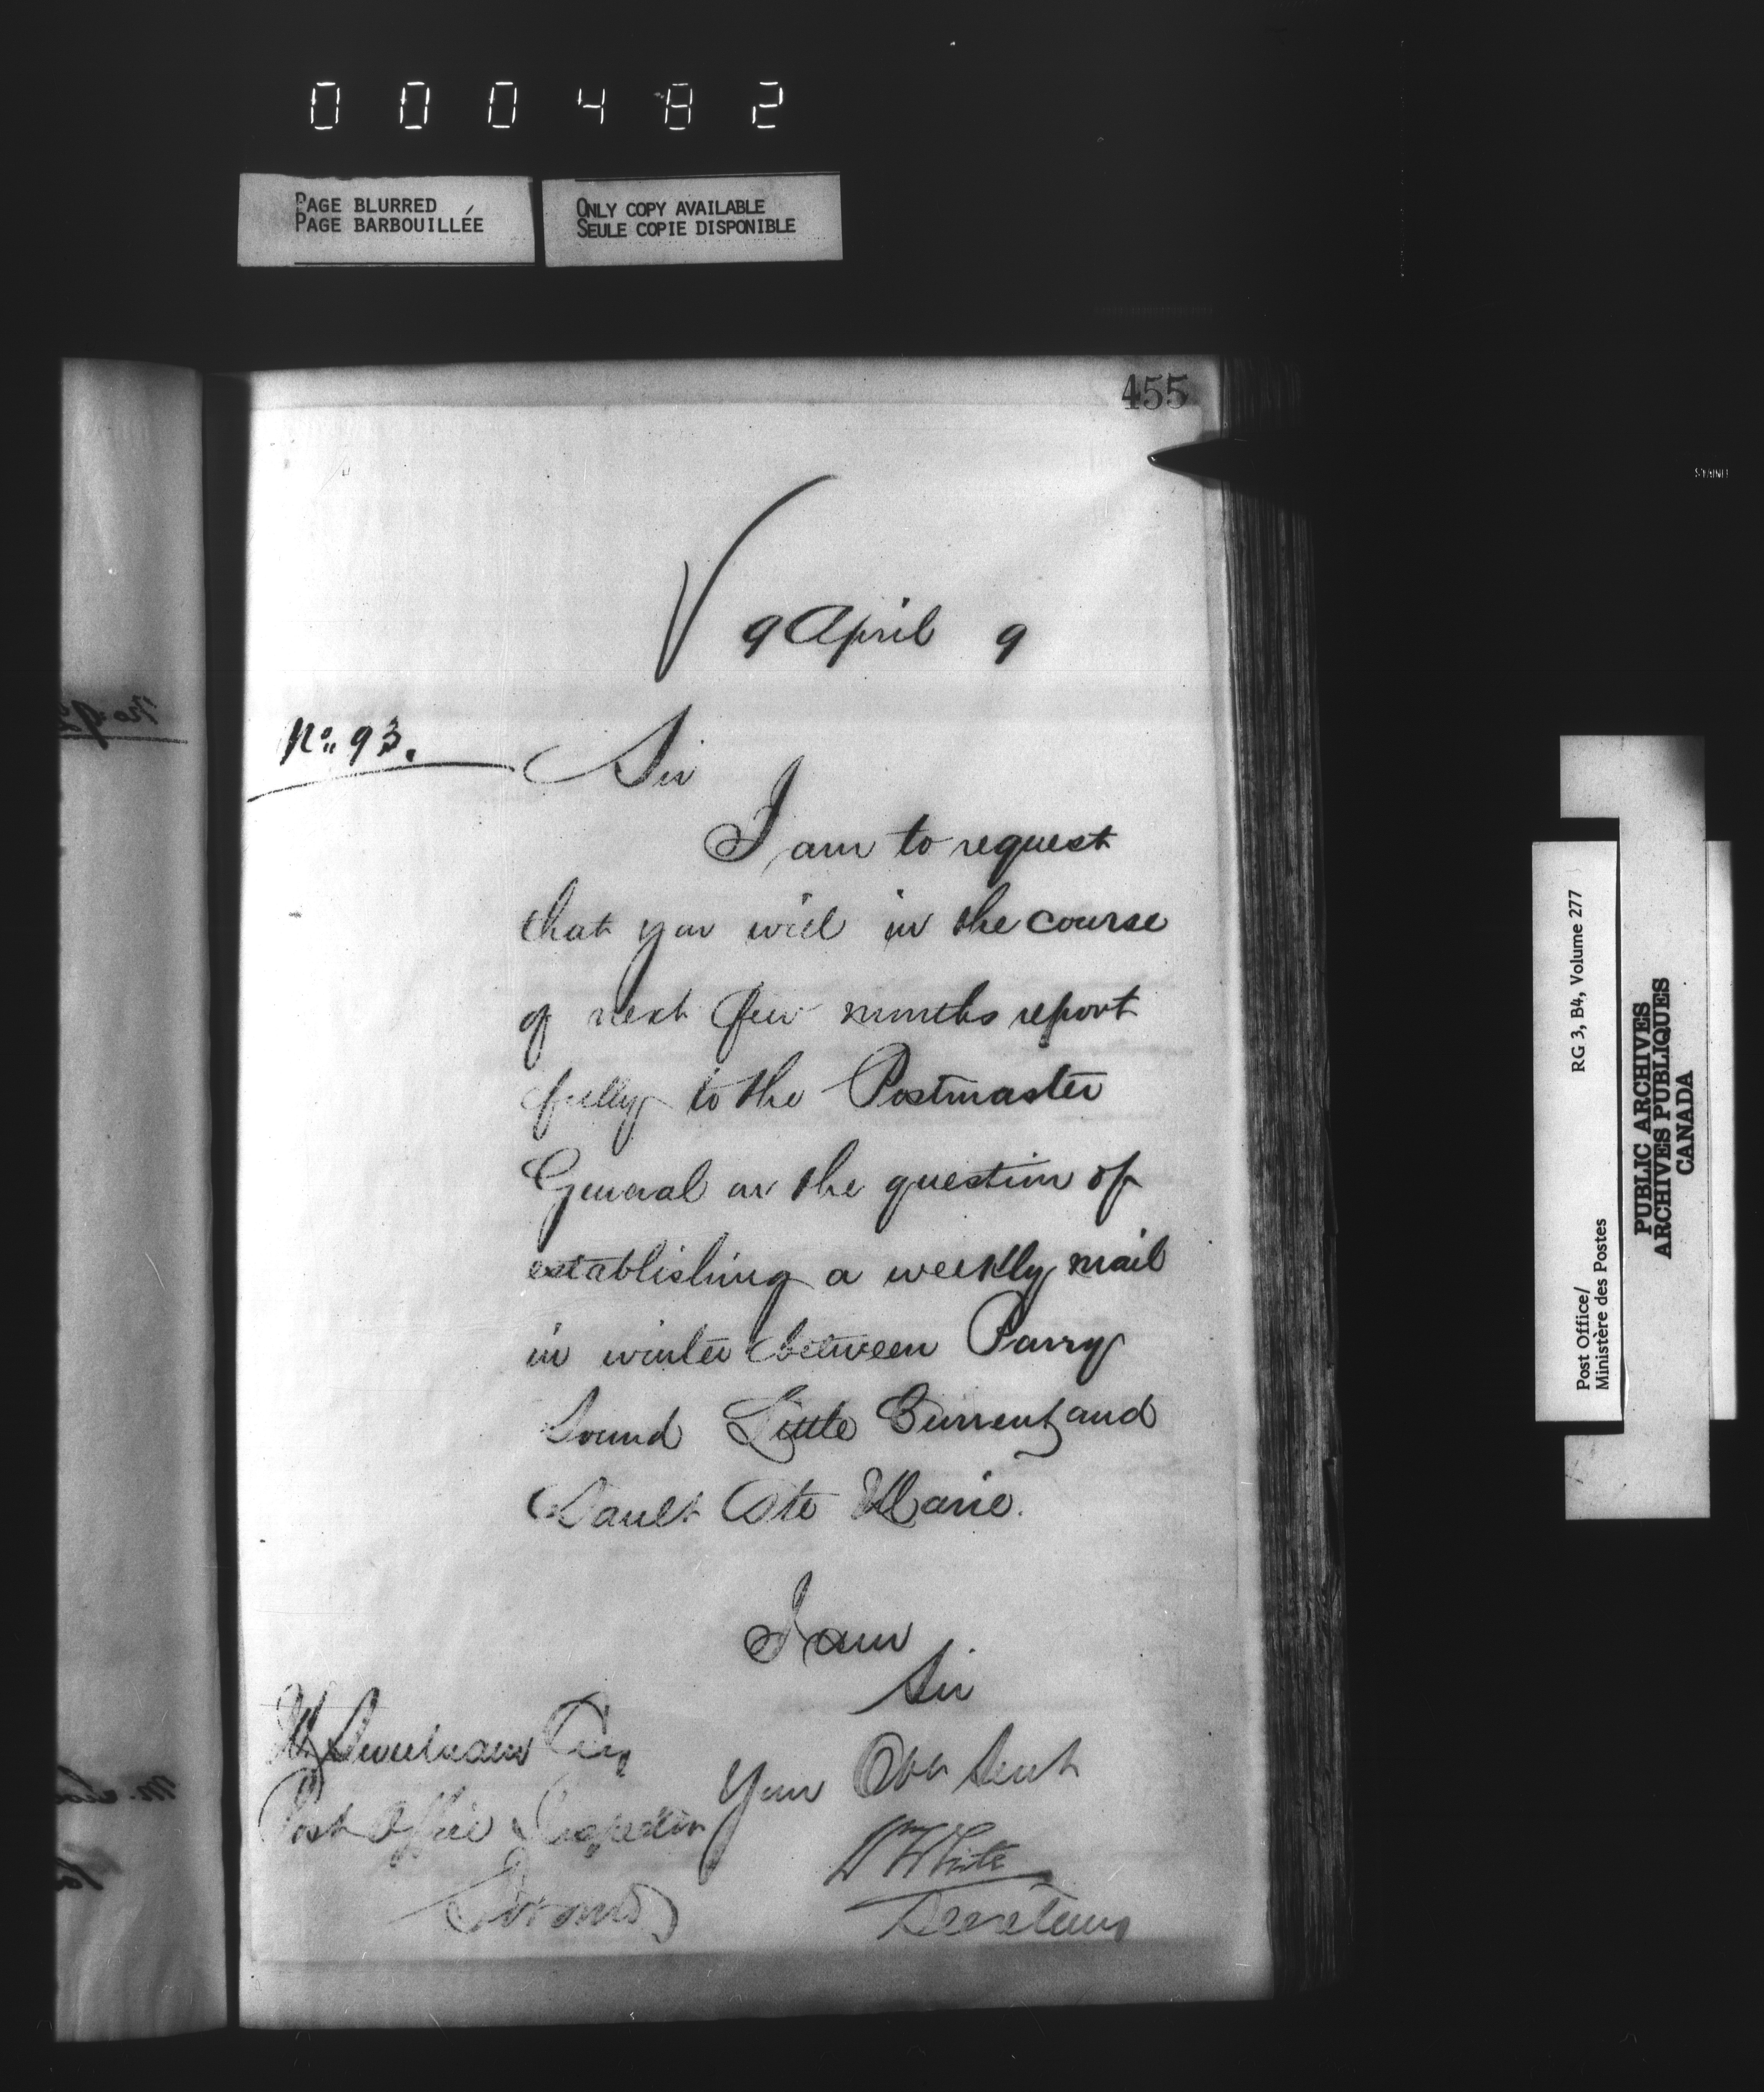 000482
PAGE BLURRED
PAGE BARBOUILLÉE
ONLY COPY AVAILABLE
SEULE COPIE DISPONIBLE
455
9 April 9
No. 93.
Sir
I am to request
that you will in the course
of next few months report
fully to the Postmaster
General on the question of
establishing a weekly mail
in winter between Parry
Sound Little Current and
Sault Ste Marie.
I am
Sir
Your Obt Servt
Wm White
Secretary
Esq
Post Office Inspector
Toronto
Post Office/
Ministère des Postes
RG 3, B4, Volume 277
PUBLIC ARCHIVES
ARCHIVES PUBLIQUES
CANADA